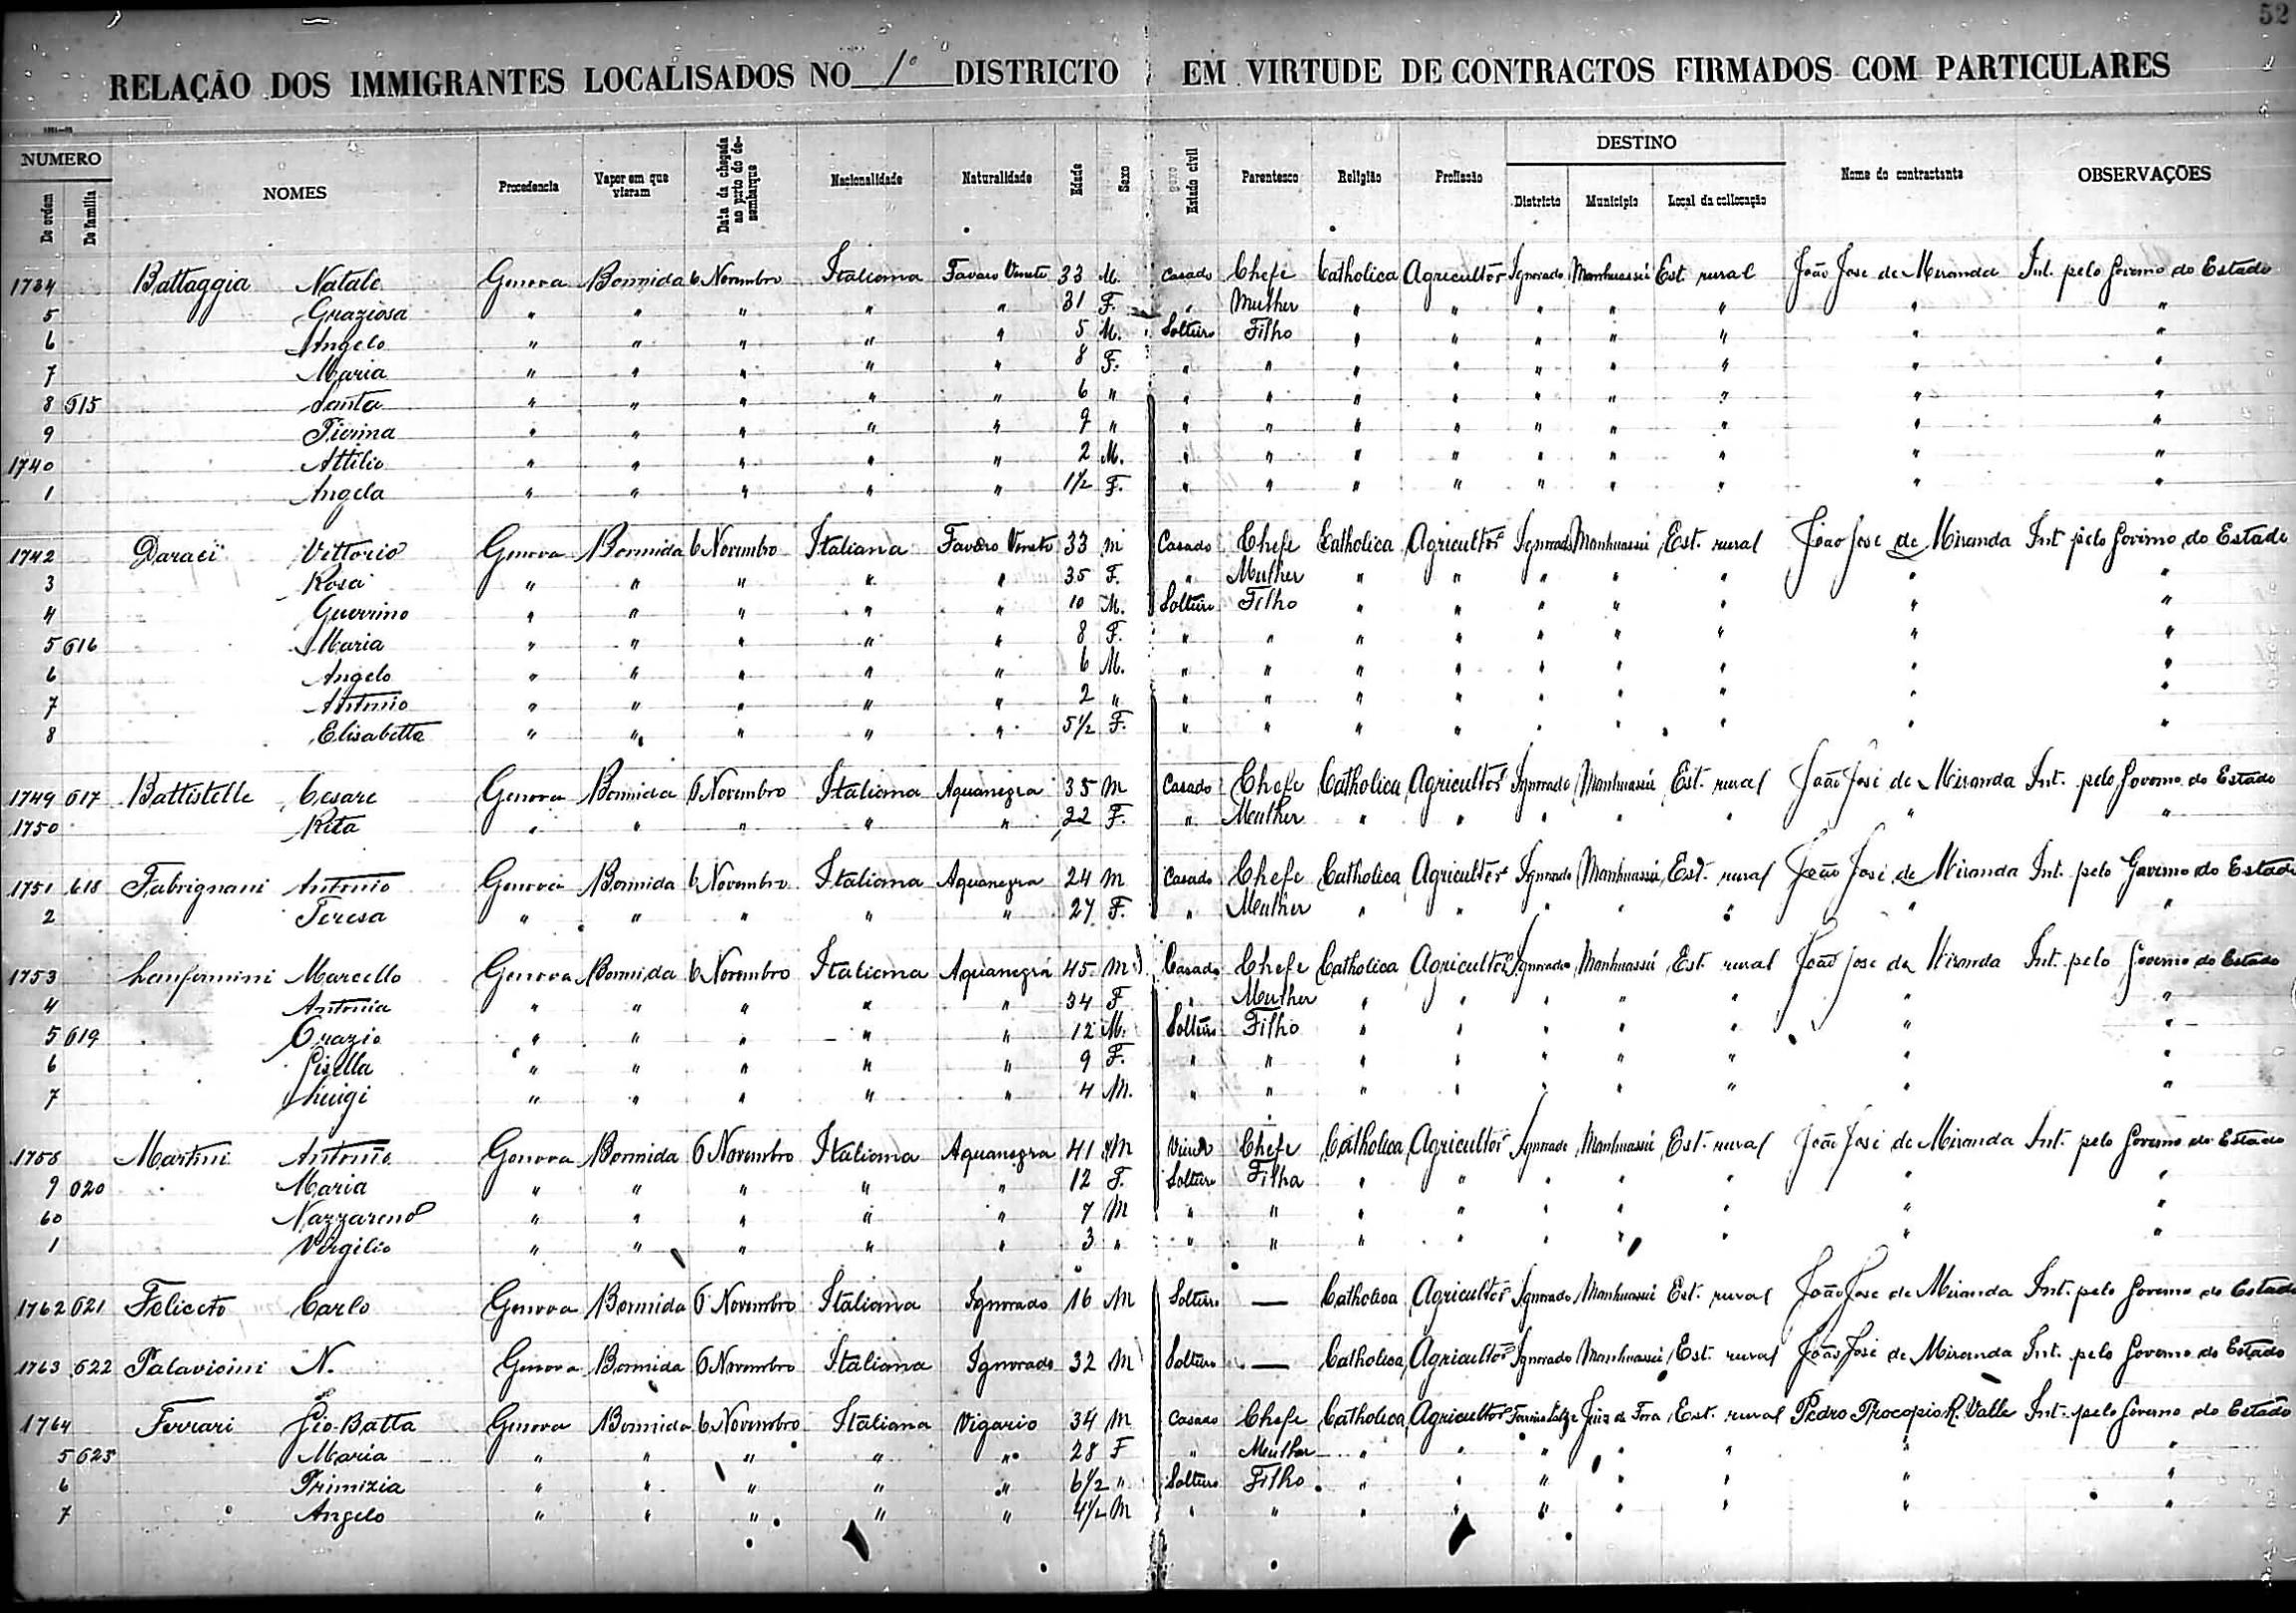 52
RELAÇÃO DOS IMMIGRANTES LOCALISADOS NO 1º DISTRICTO EM VIRTUDE DE CONTRACTOS FIRMADOS COM PARTICULARES
NUMERO De ordem De familia NOMES Procedencia Vapor em que vieram Data da chegada ao porto do desembarque Nacionalidade Naturalidade Edade Sexo Estado civil Parentesco Religião Profissão DESTINO Districto Municipio Local da collocação Nome do contractante OBSERVAÇÕES
1734 Battaggia Natale Genova Bormida 6 Novembro Italiana Favaro Veneto 33 M. Casado Chefe Catholica Agricultor Ignorado Manhuassú Est. rural João José de Miranda Int. pelo Governo do Estado
5 Graziosa " " " " " 31 F. " Mulher " " " " " " "
6 Angelo " " " " " 5 M. Solteiro Filho " " " " " " "
7 Maria " " " " " 8 F. " " " " " " " " "
8 615 Santa " " " " " 6 " " " " " " " " " "
9 Pierina " " " " " 9 " " " " " " " " " "
1740 Attilio " " " " " 2 M. " " " " " " " " "
1 Angela " " " " " 1 1/2 F. " " " " " " " " "
1742 Daraci Vittorio Genova Bormida 6 Novembro Italiana Favaro Veneto 33 M Casado Chefe Catholica Agricultor Ignorado Manhuassú Est. rural João José de Miranda Int pelo Governo do Estado
3 Rosa " " " " " 35 F. " Mulher " " " " " " "
4 Guerrino " " " " " 10 M. Solteiro Filho " " " " " " "
5 616 Maria " " " " " 8 F. " " " " " " " " "
6 Angelo " " " " " 6 M. " " " " " " " " "
7 Antonio " " " " " 2 " " " " " " " " " "
8 Elisabetta " " " " " 5 1/2 F. " " " " " " " " "
1749 617 Battistelle Cesare Genova Bormida 6 Novembro Italiana Aquanegra 35 M Casado Chefe Catholica Agricultor Ignorado Manhuassú Est. rural João José de Miranda Int. pelo Governo do Estado
1750 Rita " " " " " 22 F. " Mulher " " " " " " "
1751 618 Fabrignani Antonio Genova Bormida 6 Novembro Italiana Aquanegra 24 M Casado Chefe Catholica Agricultor Ignorado Manhuassú Est. rural João José de Miranda Int. pelo Governo do Estado
2 Teresa " " " " " 27 F. " Mulher " " " " " " "
1753 Lanfomini Marcello Genova Bormida 6 Novembro Italiana Aquanegra 45 M Casado Chefe Catholica Agricultor Ignorado Manhuassú Est. rural João José de Miranda Int. pelo Governo do Estado
4 Antonia " " " " " 34 F " Mulher " " " " " " "
5 619 Orazio " " " " " 12 M. Solteiro Filho " " " " " " "
6 Gisella " " " " " 9 F. " " " " " " " " "
7 Luigi " " " " " 4 M. " " " " " " " " "
1758 Martini Antonio Genova Bormida 6 Novembro Italiana Aquanegra 41 M Viuvo Chefe Catholica Agricultor Ignorado Manhuassú Est. rural João José de Miranda Int. pelo Governo do Estado
9 620 Maria " " " " " 12 F. Solteiro Filha " " " " " " "
60 Nazzareno " " " " " 7 M " " " " " " " " "
1 Virgilio " " " " " 3 " " " " " " " " " "
1762 621 Feliceto Carlo Genova Bormida 6 Novembro Italiana Ignorado 16 M Solteiro — Catholica Agricultor Ignorado Manhuassú Est. rural João José de Miranda Int. pelo Governo do Estado
1763 622 Palavicini N. Genova Bormida 6 Novembro Italiana Ignorado 32 M Solteiro — Catholica Agricultor Ignorado Manhuassú Est. rural João José de Miranda Int. pelo Governo do Estado
1764 Ferrari Gio-Batta Genova Bormida 6 Novembro Italiana Vigario 34 M Casado Chefe Catholica Agricultor Juiz de Fora Est. rural Pedro Procopio R. Valle Int. pelo Governo do Estado
5 623 Maria " " " " " 28 F " Mulher " " " " " " "
6 Primizia " " " " " 6 1/2 " Solteiro Filho " " " " " " "
7 Angelo " " " " " 4 1/2 M " " " " " " " " "